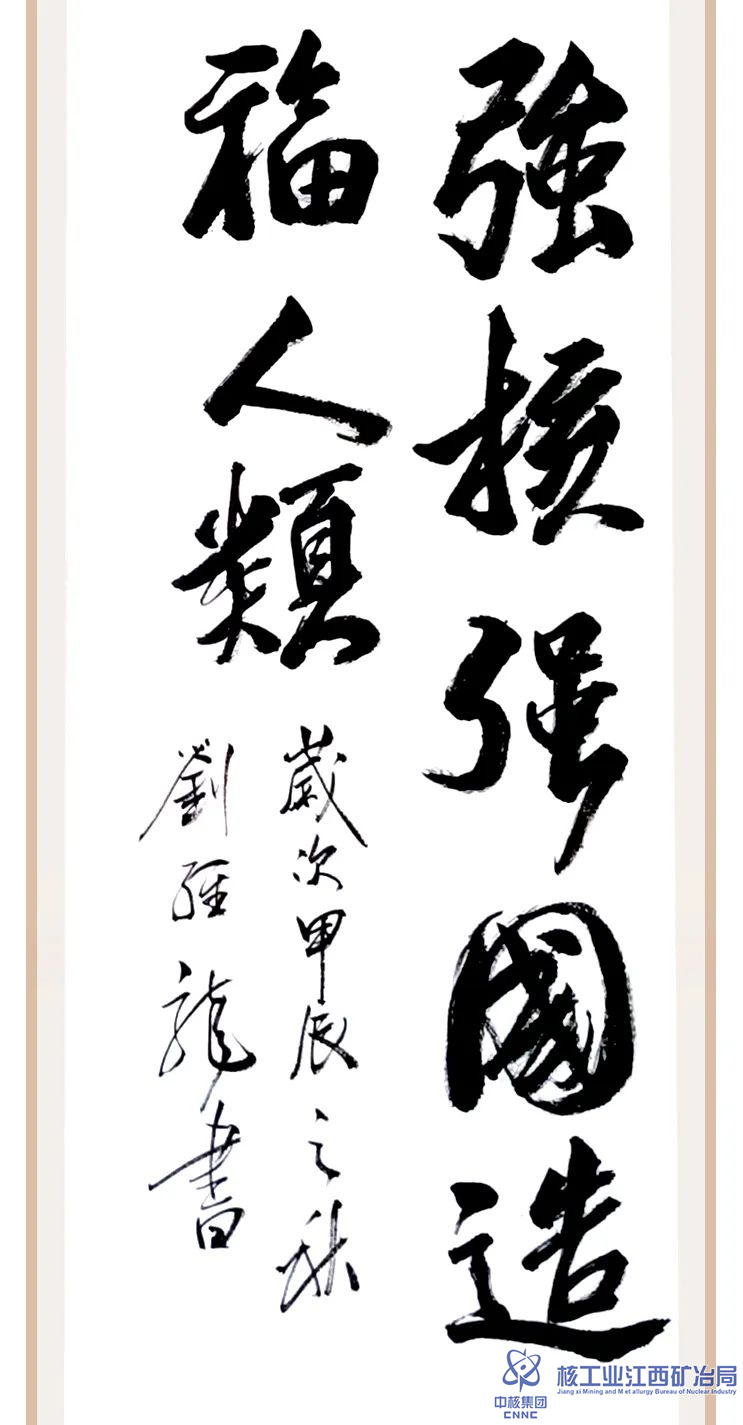 強核强國造
福人類
歲次甲辰之秋
劉經龍書
中核集团
CNNC
核工业江西矿冶局
Jiang xi Mining and M et allurgy Bureau of Nuclear Industry